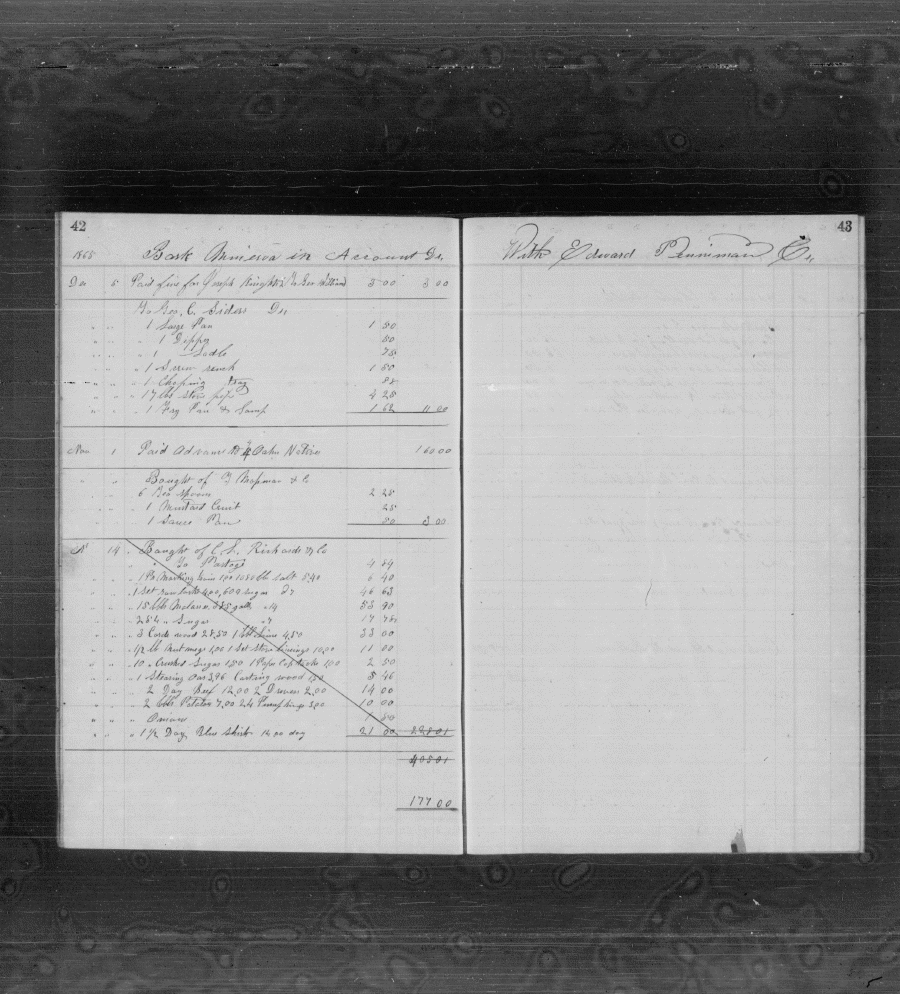 42
1865 Bark Minerva in Account Dr
Dec 5 Paid fine for Joseph Knights & Geo William 3 00 3 00
To Geo. C. Siders Dr
" " " 1 Large Pan 1 50
" " " 1 Dipper 50
" " " 1 Ladle 75
" " " 1 Screw rench 1 50
" " " 1 Choping Tray 88
" " " 17 lbs stove pipe 4 25
" " " 1 Fry Pan & Lamp 1 62 11 00
Nov 1 Paid Advance to 4 Oahu Natives 160 00
" " Bought of Chapman & Co
" " 6 Tea spoons 2 25
" " " 1 Mustard Cruit 25
" " 1 Sauce Pan 50 3 00
14 " Bought of C. L. Richards & Co
" " " " To Postage 4 54
" " " 1 Pc 100 lb salt 5 40 6 40
" " " 1 Set 400, 600 sugar 46 63
" " " 15 bbls galls " 14 53 90
" " " 254 " Sugar " 7 17 78
" " " 3 Cords wood 28,50 1 bbl Lime 4,50 33 00
" " " 1/2 lb Nutmegs 1,00 1 Set Stove Linings 10,00 11 00
" " " 10 " Crushed Sugar 1 50 1 Paper 1 00 2 50
" " " 1 Stearing Oar 3,96 Carting wood 1,50 5 46
" " " 2 Day Beef 12,00 2 2,00 14 00
" " " 2 bbls Potatoes 7,00 24 Pumpkings 3,00 10 00
" " " Onions 1 50
" " " 1 1/2 Doz Blue Shirts 14,00 doz 21 00 228 01
405 01
177 00
43
With Edward Penniman Cr